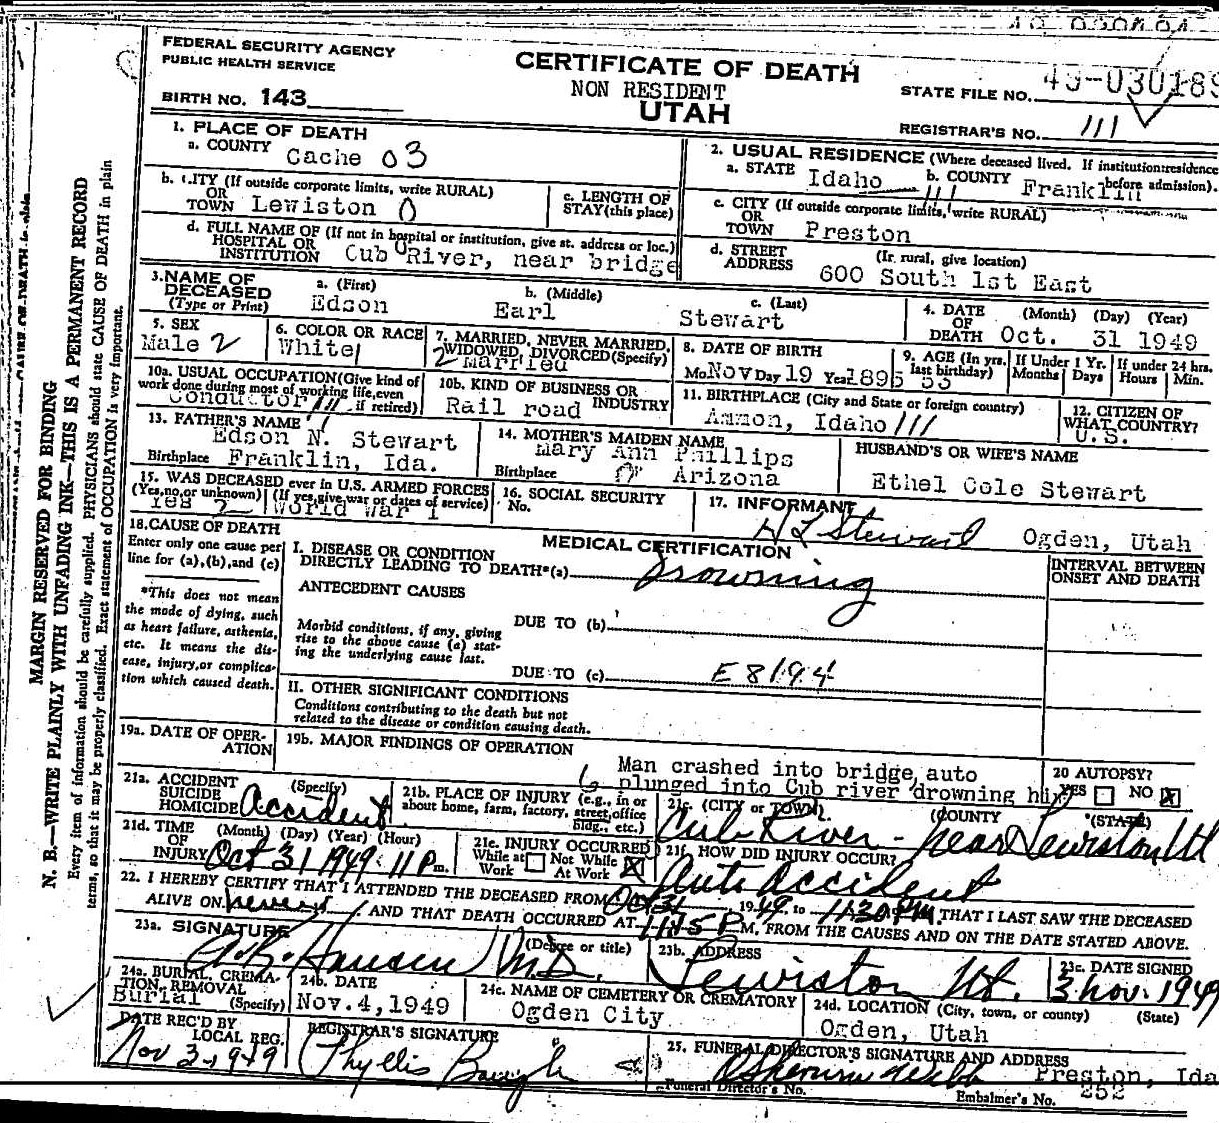 FEDERAL SECURITY AGENCY
PUBLIC HEALTH SERVICE
BIRTH NO. 143
CERTIFICATE OF DEATH
NON RESIDENT
UTAH
STATE FILE NO. 49-030189
REGISTRAR'S NO. 111
1. PLACE OF DEATH
a. COUNTY Cache 03
b. CITY (If outside corporate limits, write RURAL)
OR
TOWN Lewiston 0
c. LENGTH OF
STAY (this place)
d. FULL NAME OF (If not in hospital or institution, give st. address or loc.)
HOSPITAL OR
INSTITUTION Cub River, near bridge
2. USUAL RESIDENCE (Where deceased lived. If institution: residence
before admission).
a. STATE Idaho 111 b. COUNTY Franklin
c. CITY (If outside corporate limits, write RURAL)
OR
TOWN Preston
d. STREET (If rural, give location)
ADDRESS 600 South 1st East
3. NAME OF
DECEASED
(Type or Print)
a. (First) Edson
b. (Middle) Earl
c. (Last) Stewart
4. DATE (Month) (Day) (Year)
OF
DEATH Oct. 31 1949
5. SEX
Male 2
6. COLOR OR RACE
White 1
7. MARRIED, NEVER MARRIED,
WIDOWED, DIVORCED (Specify)
2 Married
8. DATE OF BIRTH
Mo Nov Day 19 Year 1895
9. AGE (In yrs.
last birthday)
If Under 1 Yr.
Months Days
If under 24 hrs.
Hours Min.
10a. USUAL OCCUPATION (Give kind of
work done during most of working life, even
if retired)
Conductor
10b. KIND OF BUSINESS OR
INDUSTRY
Rail road
11. BIRTHPLACE (City and State or foreign country)
Ammon, Idaho 111
12. CITIZEN OF
WHAT COUNTRY?
U.S.
13. FATHER'S NAME
Edson N. Stewart
Birthplace Franklin, Ida.
14. MOTHER'S MAIDEN NAME
Mary Ann Phillips
Birthplace Arizona
HUSBAND'S OR WIFE'S NAME
Ethel Cole Stewart
15. WAS DECEASED ever in U.S. ARMED FORCES
(Yes, no, or unknown) (If yes, give war or dates of service)
Yes 2 World War I
16. SOCIAL SECURITY
No.
17. INFORMANT
H L Stewart Ogden, Utah
18. CAUSE OF DEATH
Enter only one cause per
line for (a), (b), and (c)
*This does not mean
the mode of dying, such
as heart failure, asthenia,
etc. It means the dis-
ease, injury, or complica-
tion which caused death.
MEDICAL CERTIFICATION
I. DISEASE OR CONDITION
DIRECTLY LEADING TO DEATH*(a) Drowning
ANTECEDENT CAUSES
Morbid conditions, if any, giving
rise to the above cause (a) stat-
ing the underlying cause last.
DUE TO (b)
DUE TO (c) E 819.4
INTERVAL BETWEEN
ONSET AND DEATH
II. OTHER SIGNIFICANT CONDITIONS
Conditions contributing to the death but not
related to the disease or condition causing death.
19a. DATE OF OPER-
ATION
19b. MAJOR FINDINGS OF OPERATION
Man crashed into bridge, auto
plunged into Cub river drowning him
20 AUTOPSY?
YES NO X
21a. ACCIDENT (Specify)
SUICIDE
HOMICIDE Accident
21b. PLACE OF INJURY (e.g., in or
about home, farm, factory, street, office
bldg., etc.)
21c. (CITY or TOWN) (COUNTY (STATE)
Cub River - near Lewiston Ut
21d. TIME (Month) (Day) (Year) (Hour)
OF
INJURY Oct 31 1949 11 P m.
21e. INJURY OCCURRED
While at Work Not While At Work X
21f. HOW DID INJURY OCCUR?
Auto Accident
22. I HEREBY CERTIFY THAT I ATTENDED THE DECEASED FROM Oct 31 1949, to 11:30 P.M. THAT I LAST SAW THE DECEASED
ALIVE ON never AND THAT DEATH OCCURRED AT 11:15 P M. FROM THE CAUSES AND ON THE DATE STATED ABOVE.
23a. SIGNATURE (Degree or title)
Hansen M.D.
23b. ADDRESS
Lewiston Ut.
23c. DATE SIGNED
3 Nov. 1949
24a. BURIAL, CREMA-
TION, REMOVAL
(Specify)
Burial
24b. DATE
Nov. 4, 1949
24c. NAME OF CEMETERY OR CREMATORY
Ogden City
24d. LOCATION (City, town, or county) (State)
Ogden, Utah
DATE REC'D BY
LOCAL REG.
Nov 3-1949
REGISTRAR'S SIGNATURE
Phyllis
25. FUNERAL DIRECTOR'S SIGNATURE AND ADDRESS
Webb Preston, Ida
Funeral Director's No.
Embalmer's No. 252
MARGIN RESERVED FOR BINDING
N. B.—WRITE PLAINLY WITH UNFADING INK—THIS IS A PERMANENT RECORD
Every item of information should be carefully supplied. PHYSICIANS should state CAUSE OF DEATH in plain
terms, so that it may be properly classified. Exact statement of OCCUPATION is very important.